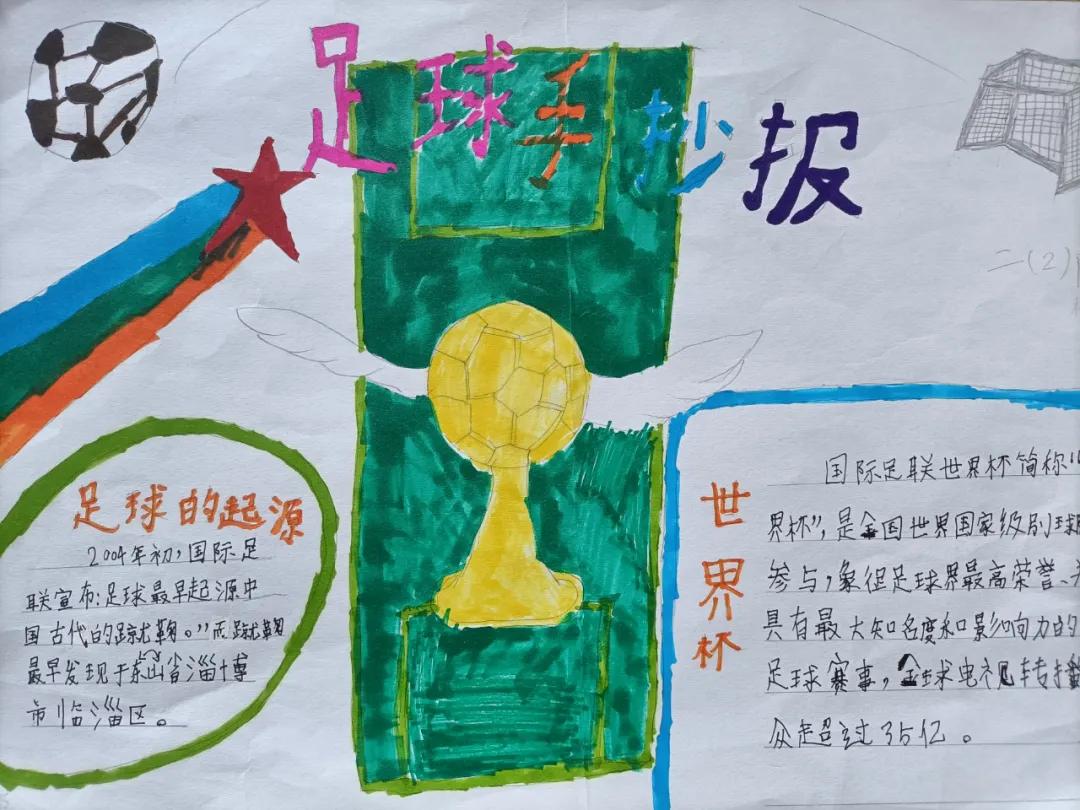 足球手抄报
二(2)
足球的起源
2004年初,国际足
联宣布:足球最早起源中
国古代的蹴鞠。”而蹴鞠
最早发现于山东省淄博
市临淄区。
世界杯
国际足联世界杯简称“
界杯”,是全国世界国家级别球
参与,象征足球界最高荣誉、并
具有最大知名度和影响力的
足球赛事,全球电视转播
众超过35亿。